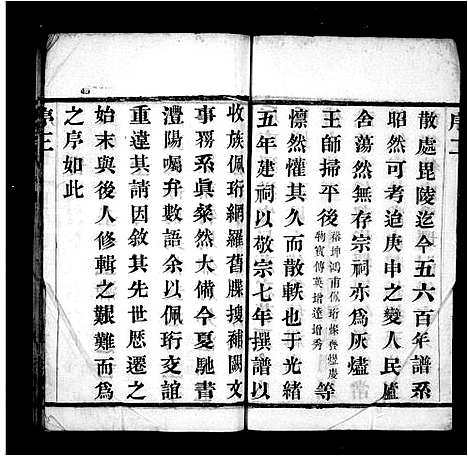 散處毘陵迄今五六百年譜系
昭然可考迨庚申之變人民廬
舍蕩然無存宗祠亦爲灰燼
王師掃平後裕坤鴻甫佩珩
物賓傳英增達增秀等
懔然懼其久而散軼也于光緒
五年建祠以敬宗七年撰譜以
收族佩珩網羅舊牒搜補闕文
事務系眞粲然大備今夏馳書
澧陽囑弁數語余以佩珩交誼
重違其請因敘其先世厯遷之
始末與後人修輯之艱難而爲
之序如此
序